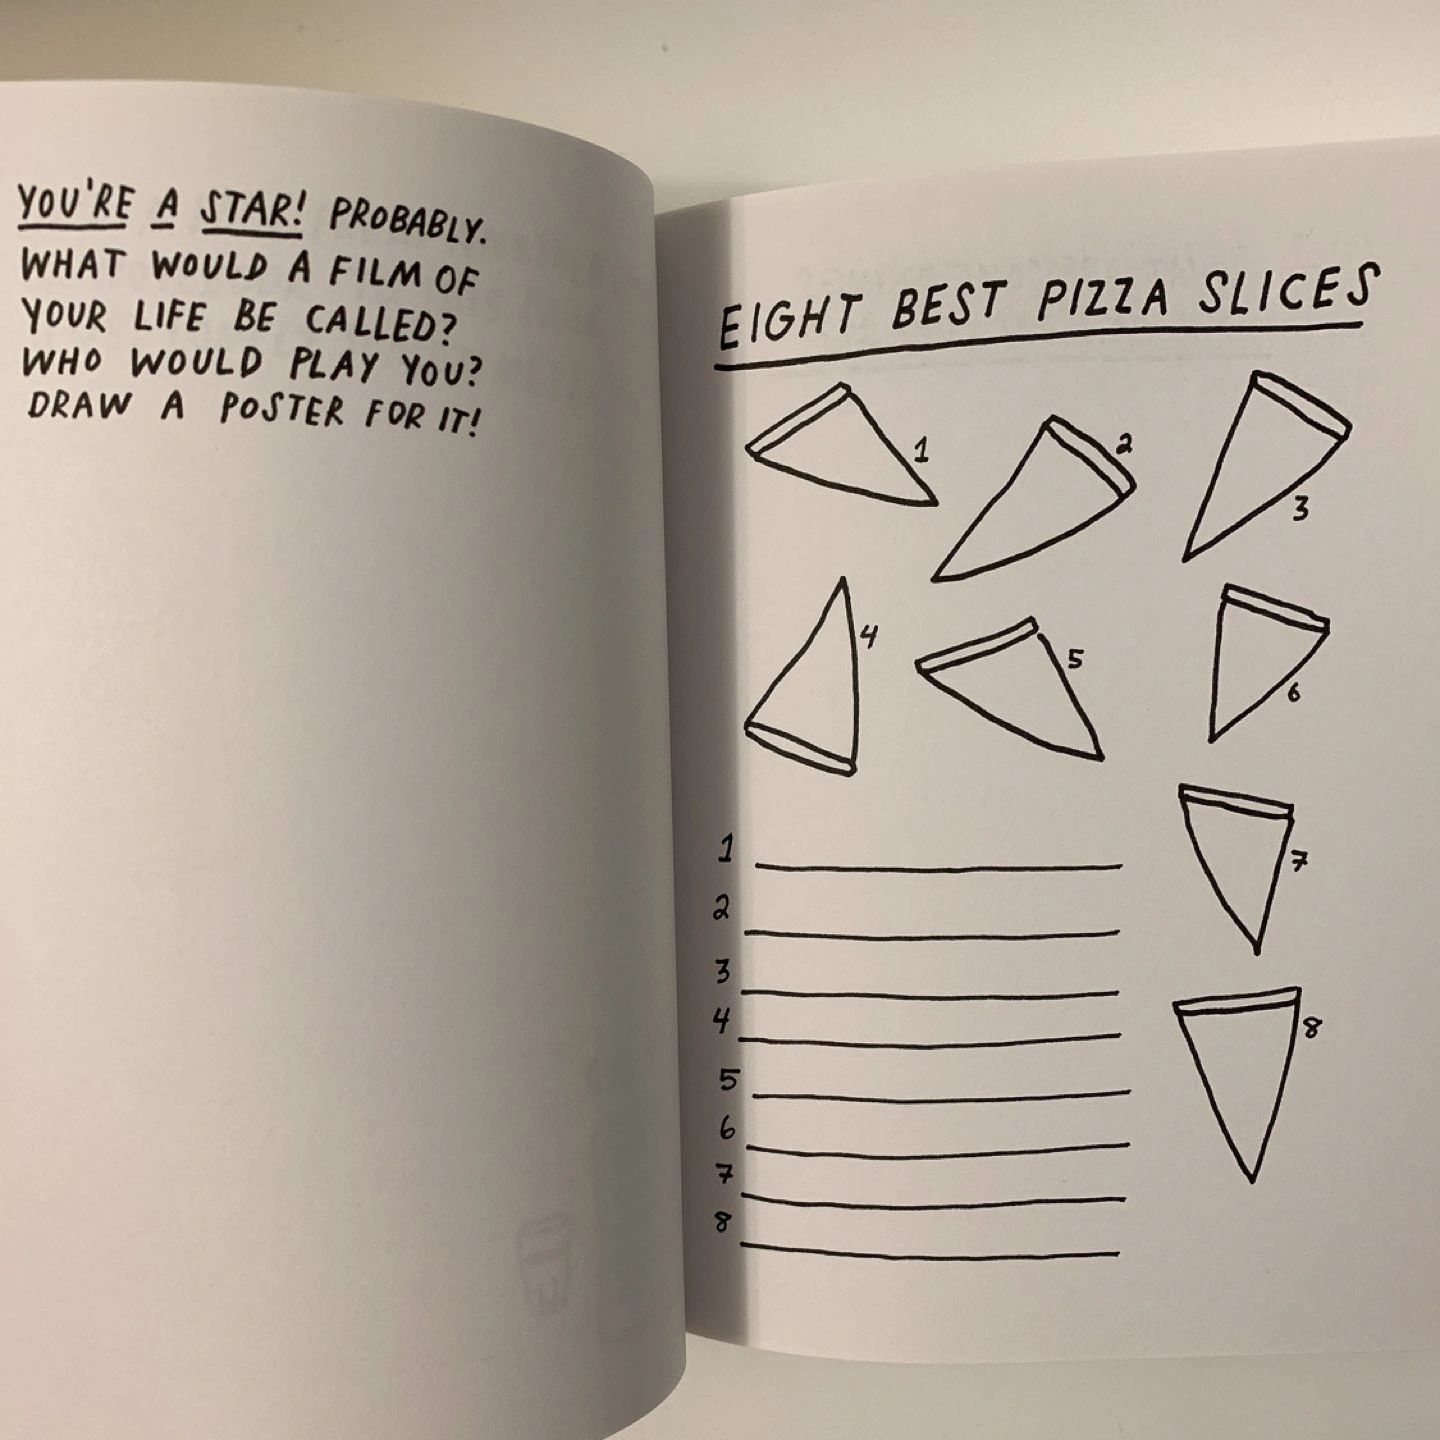 YOU'RE A STAR! PROBABLY.
WHAT WOULD A FILM OF
YOUR LIFE BE CALLED?
WHO WOULD PLAY YOU?
DRAW A POSTER FOR IT!
EIGHT BEST PIZZA SLICES
1
2
3
4
5
6
7
8
1
2
3
4
5
6
7
8